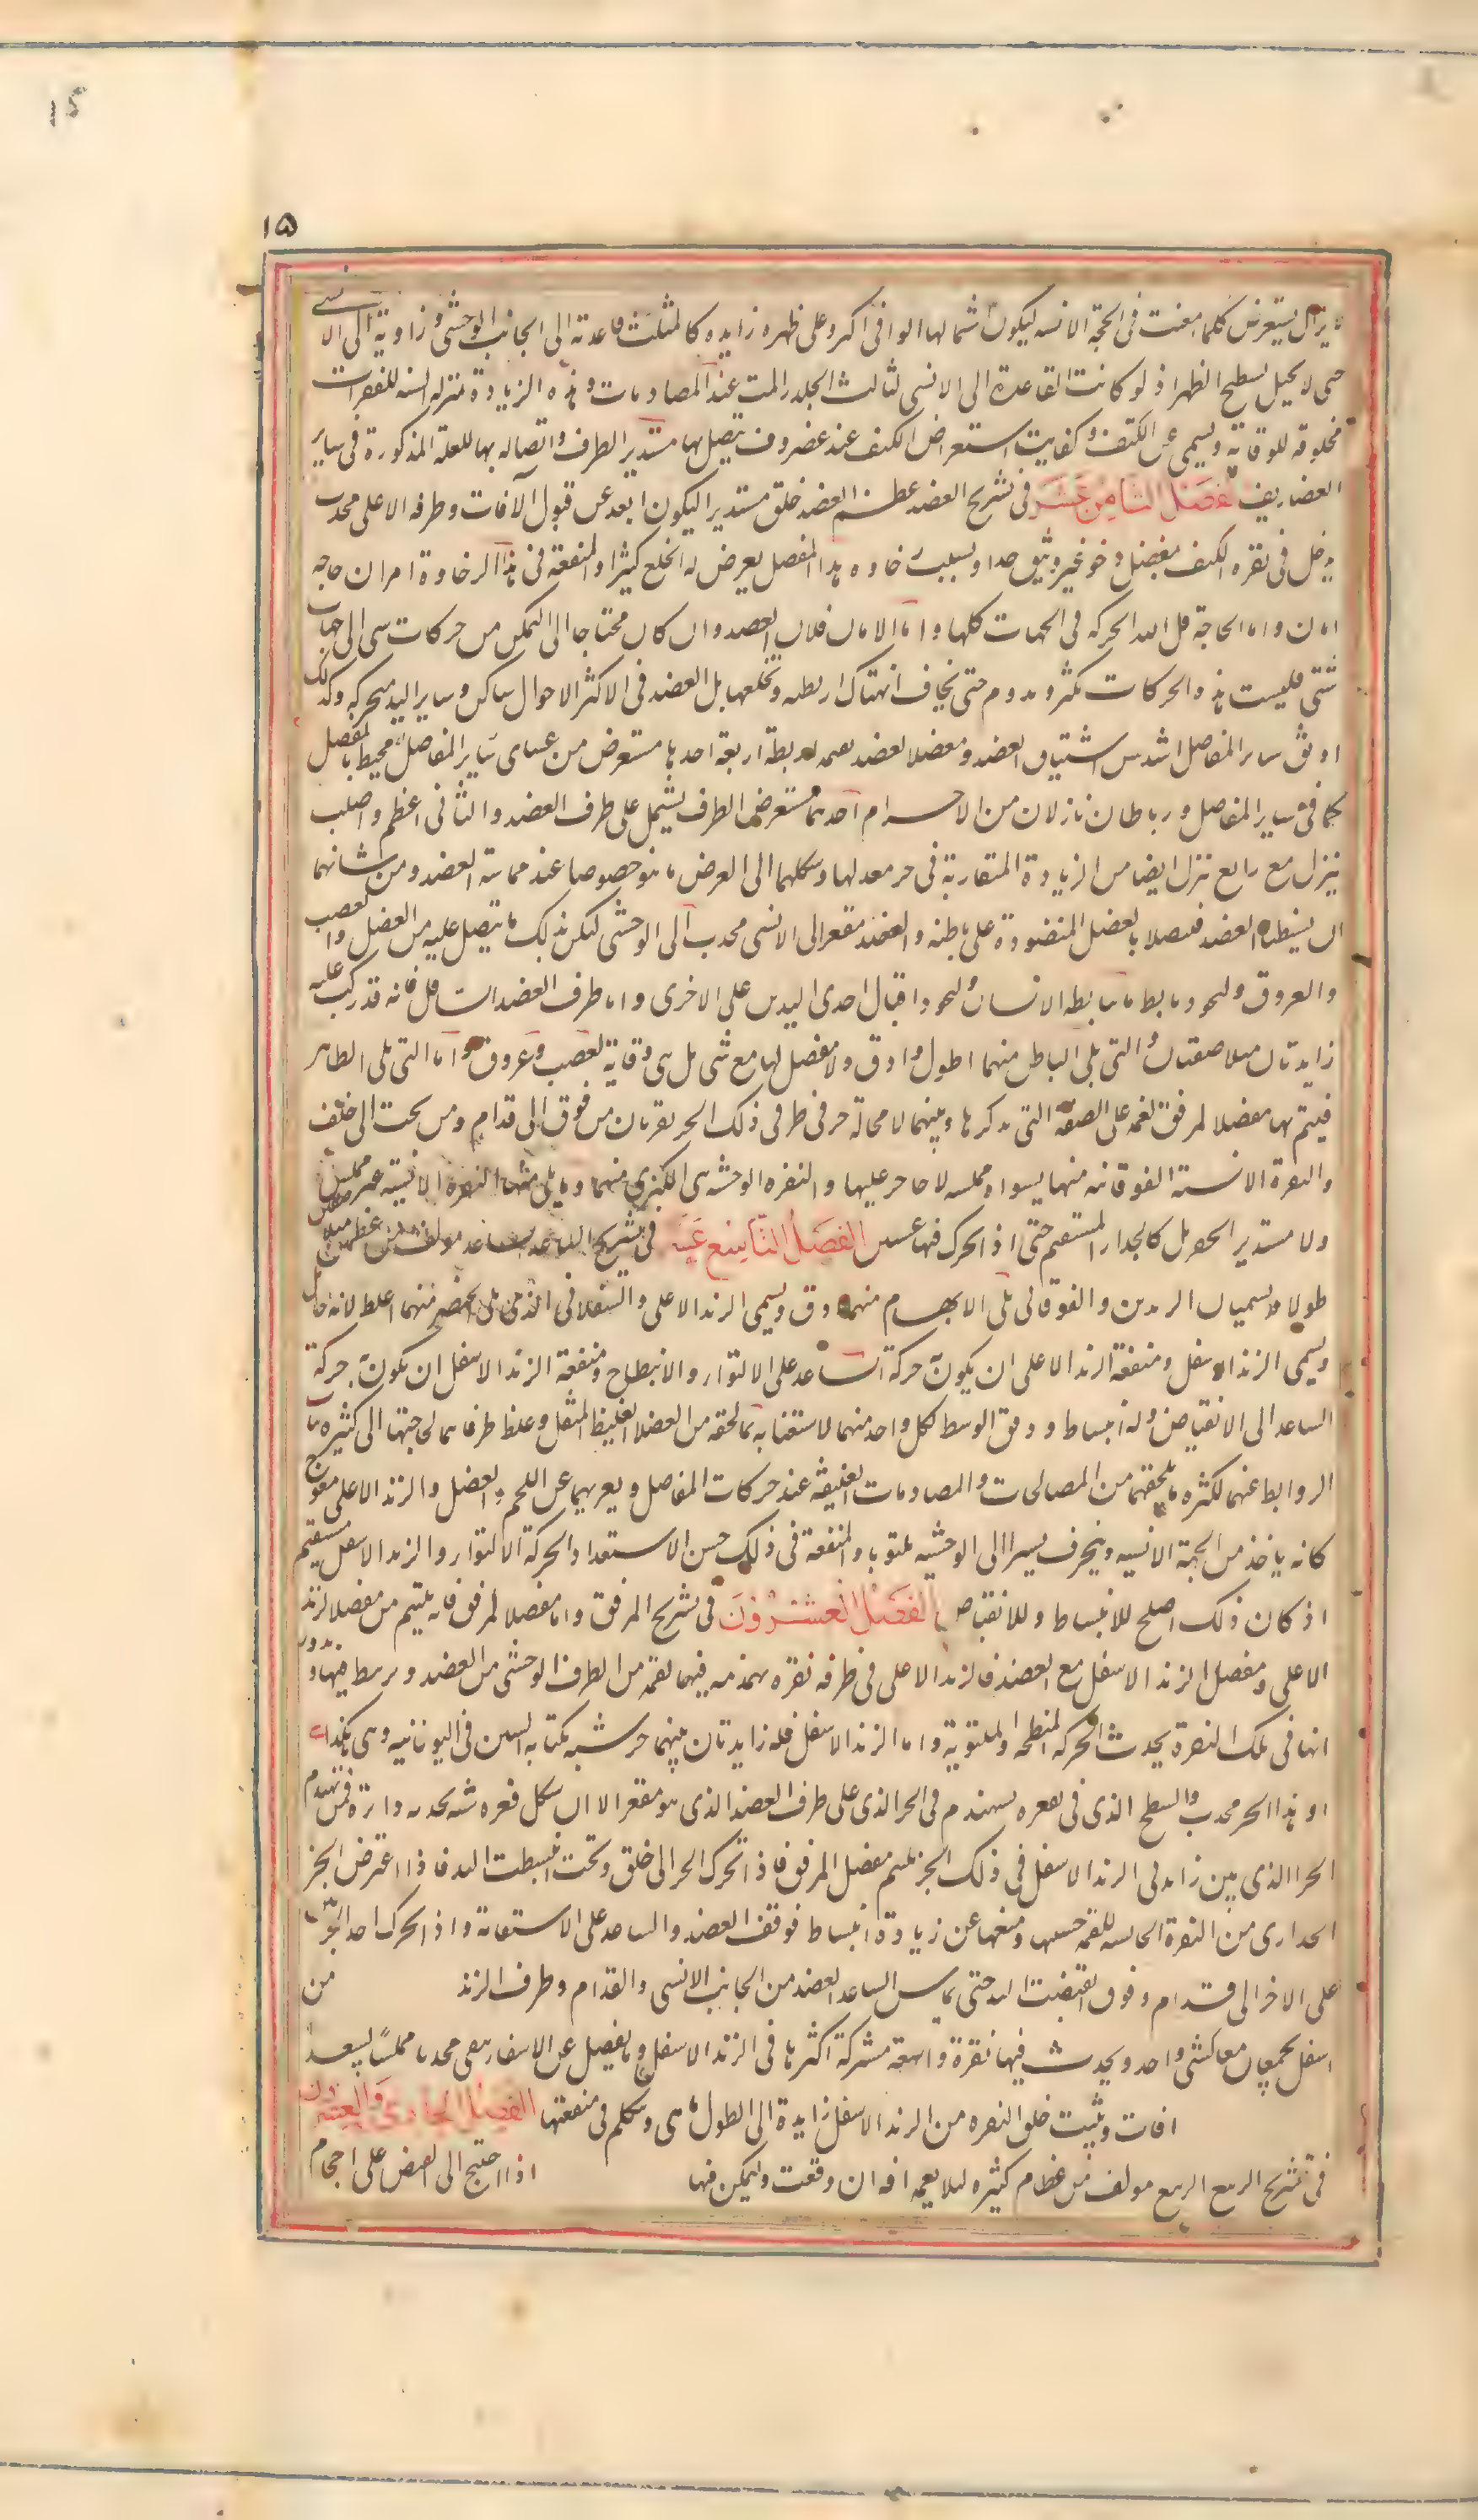 15
١٥
يزال يستعرض كلما امعنت فى الجهة الانسيه ليكون اشتمالها الوافى اكثر وعلى ظهره زايده كالمثلث قاعدته الى الجانب الوحشى وزاويته الى الانسى
حتى لا يختل تسطيح الظهر اذ لو كانت القاعدة الى الانسى لشالت الجلد والمت عند المصادمات وهذه الزيادة بمنزله السنسنه للفقرات
مخلوقه للوقاية ويسمى عير الكتف ونهاية استعراض الكتف عند غضروف يتصل بها مستدير الطرف واتصاله بها للعلة المذكورة فى ساير
الغضاريف الفصل الثامن عشر فى تشريح العضد عظم العضد خلق مستديرا ليكون ابعد عن قبول الآفات وطرفه الاعلى محدب
يدخل فى نقره الكتف بمفصل رخو غير وثيق جدا وبسبب رخاوه هذا المفصل يعرض له الخلع كثيرا والمنفعة فى هذا الرخاوة امران حاجه
وامان واما الحاجة فسلاسة الحركه فى الجهات كلها واما الامان فلان العضد وان كان محتاجا الى التمكن من حركات شتى الى جهات
شتى فليست هذه الحركات تكثر وتدوم حتى يخاف انهتاك اربطته وتخلعها بل العضد فى اكثر الاحوال ساكن وساير اليد متحركه وكذلك
اوثق ساير المفاصل اشد من استيثاق العضد ومفصل العضد يضمه اربطة اربعة احدها مستعرض غشائى محيط بالمفصل
كما فى ساير المفاصل ورباطان نازلان من الاخرم احدهما مستعرض الطرف يشتمل على طرف العضد والثانى اعظم واصلب
ينزل مع رابع ينزل ايضا من الزيادة المنقارية فى حز معد لها وشكلهما الى العرض ما هو خصوصا عند مماسة العضد ومن شانهما
ان يستبطنا العضد فيتصلا بالعضل المنضودة على باطنه والعضد مقعر الى الانسى محدب الى الوحشى ليكن بذلك ما يتصل عليه من العضل والعصب
والعروق وليجود تابط ما يتابطه الانسان وليجود اقبال احدى اليدين على الاخرى واما طرف العضد السافل فانه قد ركب عليه
زايدتان متلاصقتان والتى تلى الباطن منهما اطول وادق ولا مفصل لها مع شى بل هى وقاية لعصب وعروق واما التى تلى الظاهر
فيتم بها مفصل المرفق بلقمة على الصفة التى نذكرها وبينهما لا محالة حز فى طرفى ذلك الحز نقرتان من فوق الى قدام ومن تحت الى خلف
والنقرة الانسية الفوقانيه منهما مسواة مملسه لا حاجز عليها والنقره الوحشيه هى الكبرى منهما وما يلى منها النقرة الانسيه غير مملس
ولا مستدير الحفر بل كالجدار المستقيم حتى اذا تحرك فيها الفصل التاسع عشر فى تشريح الساعد الساعد مولف من عظمين متلاصقين
طولا ويسميان الزندين والفوقانى الذى يلى الابهام منهما ادق ويسمى الزند الاعلى والسفلانى الذى يلى الخنصر منهما اغلظ لانه حامل
ويسمى الزند الاسفل ومنفعة الزند الاعلى ان يكون به حركة الساعد على الالتوا والانبطاح ومنفعة الزند الاسفل ان يكون به حركة
الساعد الى الانقباض والانبساط ودقق الوسط لكل واحد منهما لاستغنايه بما يحفه من العضل الغليظ المثقل وغلظ طرفاهما لحاجتهما الى كثره نبات
الروابط عنهما لكثره ما يلحقهما من المصاكات والمصادمات العنيفة عند حركات المفاصل وتعريهما عن اللحم والعضل والزند الاعلى معوج
كانه ياخذ من الجهة الانسيه وينحرف يسيرا الى الوحشيه ملتويا والمنفعة فى ذلك حسن الاستعداد لحركة الالتوا والزند الاسفل مستقيم
اذ كان ذلك اصلح للانبساط وللانقباض الفصل العشرون فى تشريح المرفق واما مفصل المرفق فانه يلتيم من مفصل الزند
الاعلى ومفصل الزند الاسفل مع العضد فالزند الاعلى فى طرفه نقره مهندمه فيها لقمة من الطرف الوحشى من العضد ويرتبط فيها وبدورانها
فى تلك النقرة يحدث الحركه المنبطحه والملتوية واما الزند الاسفل فله زايدتان بينهما حز شبيه بكتابه السين فى اليونانيه وهى هكذا
وهذا الحز محدب السطح الذى فى تقعره ليتهندم فى الحز الذى على طرف العضد الذى هو مقعر الا ان شكل قعره شبيه بحدبه دائرة فمن تهندم
الحز الذى بين زايدتى الزند الاسفل فى ذلك الحز يلتيم مفصل المرفق فاذا تحرك الحز الى خلف وتحت انبسطت اليد فاذا اعترض الحز
الجدارى من النقرة الحابسه للقمة حبسها ومنعها عن زيادة انبساط فوقف العضد والساعد على الاستقامة واذا تحرك احد الحزين
على الاخر الى قدام وفوق انقبضت اليد حتى يماس الساعد العضد من الجانب الانسى والقدام وطرف الزندين من
اسفل يجتمعان معا كشى واحد ويحدث فيها نقرة واسعة مشتركة اكثرها فى الزند الاسفل وما يفضل عن الانتقار يبقى محدبا مملسا ليبعد
افات ويثبت خلف النقره من الزند الاسفل زايدة الى الطول ما هى وسنتكلم فى منفعتها الفصل الحادى والعشرون
فى تشريح الرسغ الرسغ مولف من عظام كثيره لئلا يعمه افه ان وقعت وليمكن فيها اذا احتيج الى القبض على احجام